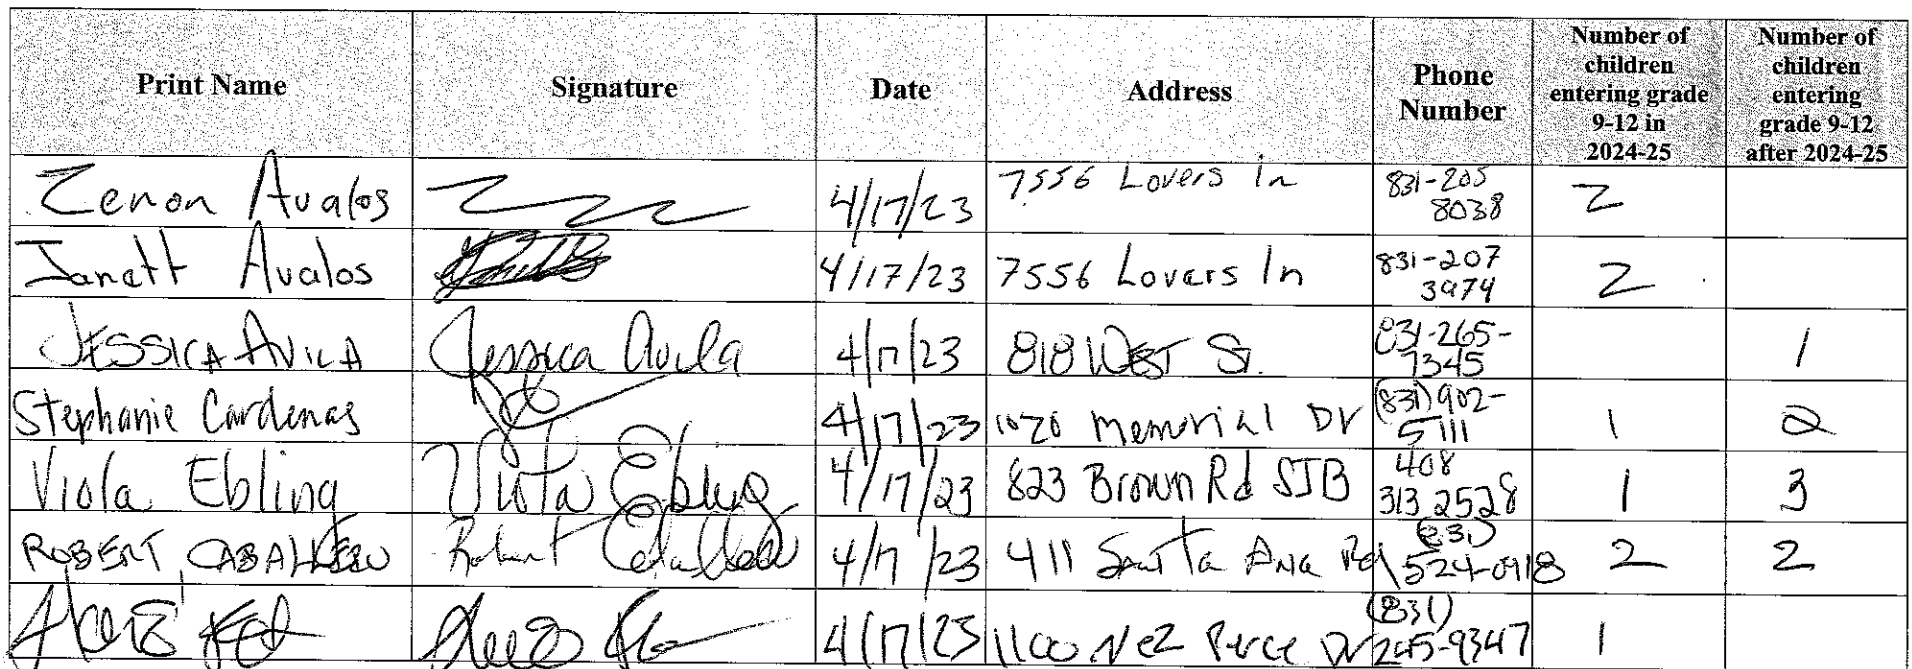 Print Name Signature Date Address Phone Number Number of children entering grade 9-12 in 2024-25 Number of children entering grade 9-12 after 2024-25
Zenon Avalos 4/17/23 7556 Lovers ln 831-205 8038 2
Janett Avalos 4/17/23 7556 Lovers ln 831-207 3974 2
JESSICA AVILA Jessica Avila 4/17/23 818 WEST St. 831-265-7345 1
Stephanie Cardenas 4/17/23 1020 Memorial Dr (831) 902-5111 1 2
Viola Ebling Viola Ebling 4/17/23 823 Brown Rd SJB 408 313 2528 1 3
ROBERT CABALLERO Robert Caballero 4/17/23 411 Santa Ana Rd (831) 524-0918 2 2
4/17/23 1100 Nez Perce Dr (831) 245-9347 1